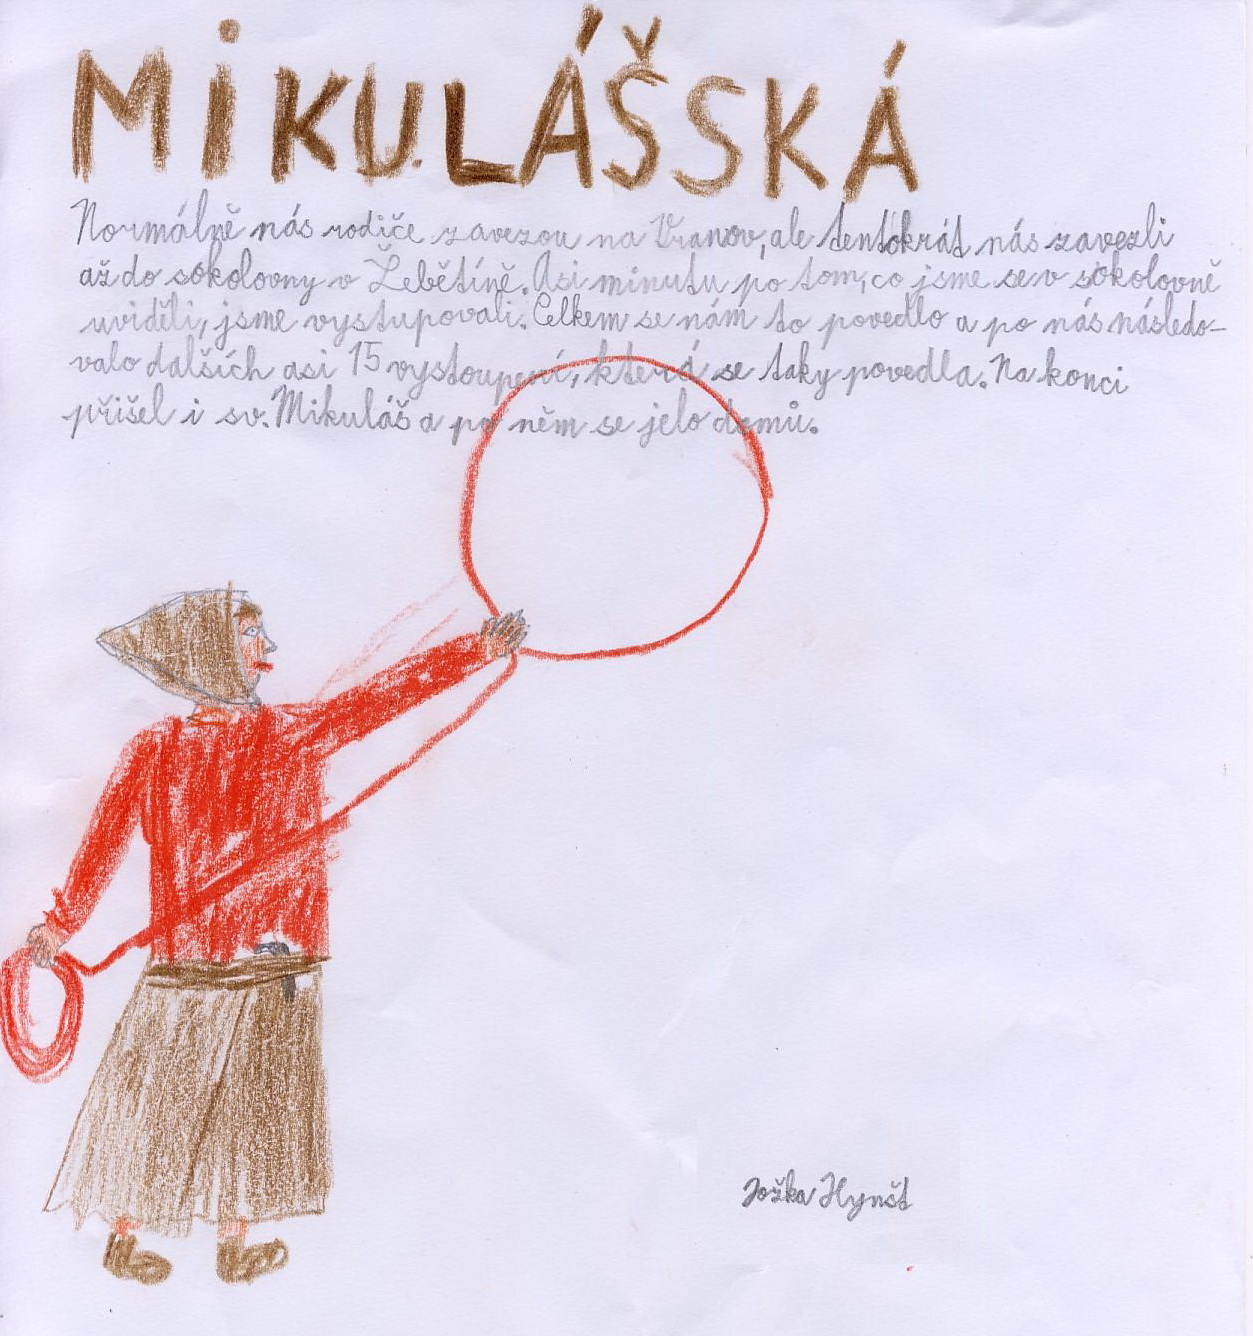 MiKULÁŠSKÁ
Normálně nás rodiče zavezou na Vranov, ale tentokrát nás zavezli
až do sokolovny v Žebětíně. Asi minutu po tom, co jsme se v sokolovně
uviděli, jsme vystupovali. Celkem se nám to povedlo a po nás následo-
valo dalších asi 15 vystoupení, která se taky povedla. Na konci
přišel i sv. Mikuláš a po něm se jelo domů.
Jožka Hynšt